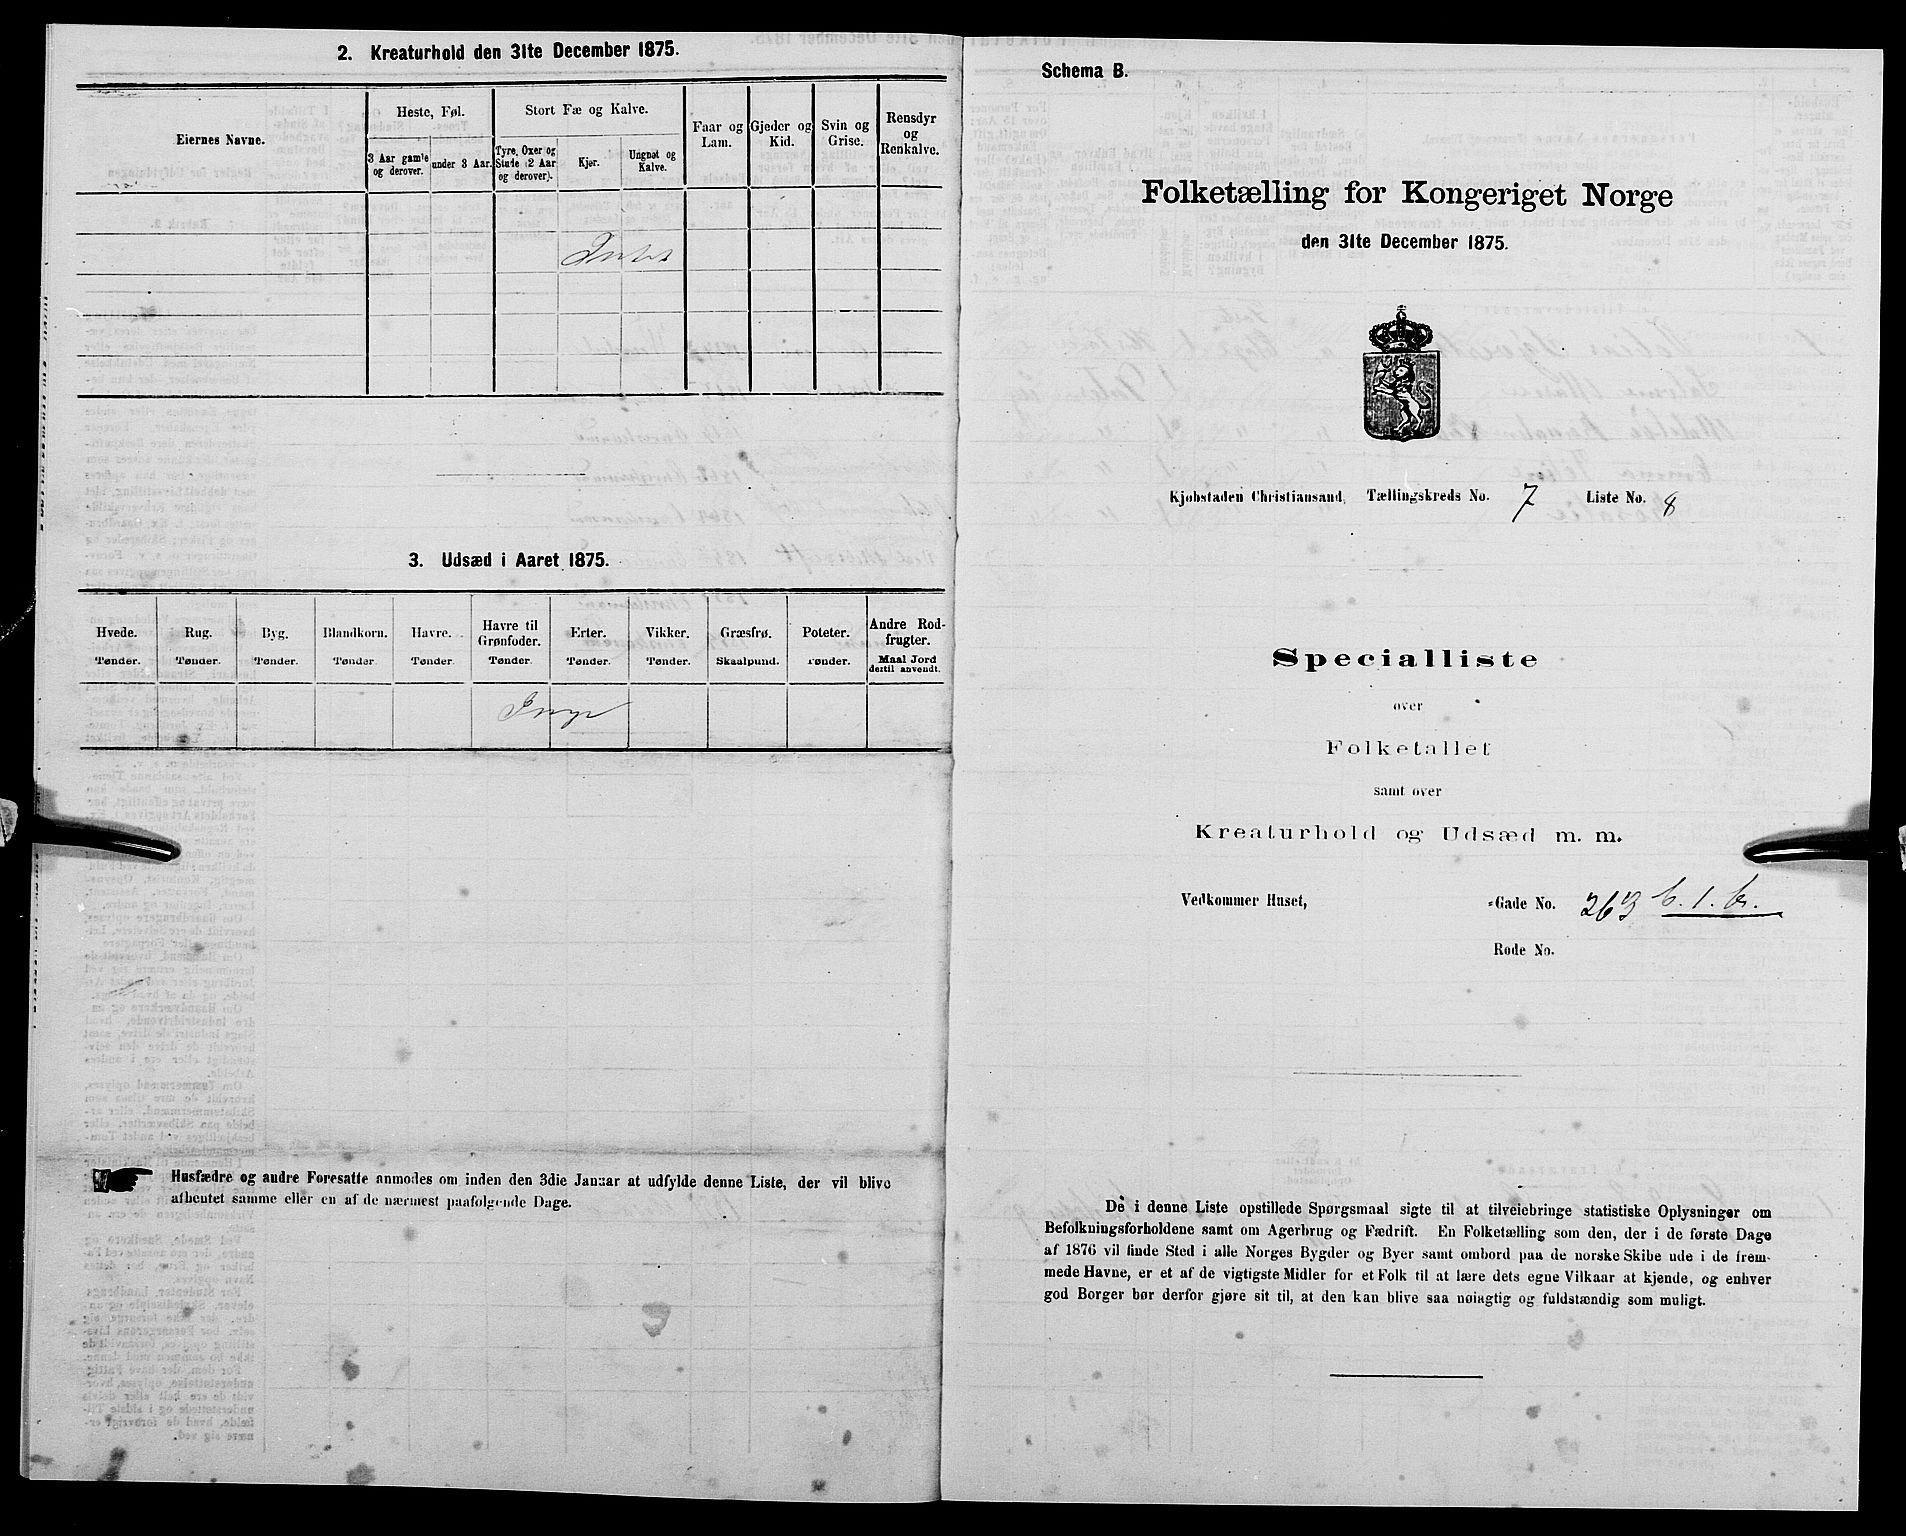 2. Kreaturhold den 31te December 1875.
Eiernes Navne.
Heste, Føl.
3 Aar gamle og derover.
under 3 Aar.
Stort Fæ og Kalve.
Tyre, Oxer og Stude (2 Aar og derover).
Kjør.
Ungnøt og Kalve.
Faar og Lam.
Gjeder og Kid.
Svin og Grise.
Rensdyr og Renkalve.
Intet
3. Udsæd i Aaret 1875.
Hvede. Rug. Byg. Blandkorn. Havre. Havre til Grønfoder. Erter. Vikker. Græsfrø. Poteter. Andre Rodfrugter.
Tønder. Tønder. Tønder. Tønder. Tønder. Tønder. Tønder. Tønder. Skaalpund. Tønder. Maal Jord dertil anvendt.
Husfædre og andre Foresatte anmodes om inden den 3die Januar at udfylde denne Liste, der vil blive
afhentet samme eller en af de nærmest paafølgende Dage.
Schema B.
Folketælling for Kongeriget Norge
den 31te December 1875.
Kjøbstaden Christiansand, Tællingskreds No. 7 Liste No. 8
Specialliste
over
Folketallet
samt over
Kreaturhold og Udsæd m. m.
Vedkommer Huset, -Gade No. 263 b. 1. 
Rode No.
De i denne Liste opstillede Spørgsmaal sigte til at tilveiebringe statistiske Oplysninger om
Befolkningsforholdene samt om Agerbrug og Fædrift. En Folketælling som den, der i de første Dage
af 1876 vil finde Sted i alle Norges Bygder og Byer samt ombord paa de norske Skibe ude i de frem-
mede Havne, er et af de vigtigste Midler for et Folk til at lære dets egne Vilkaar at kjende, og enhver
god Borger bør derfor gjøre sit til, at den kan blive saa nøiagtig og fuldstændig som muligt.